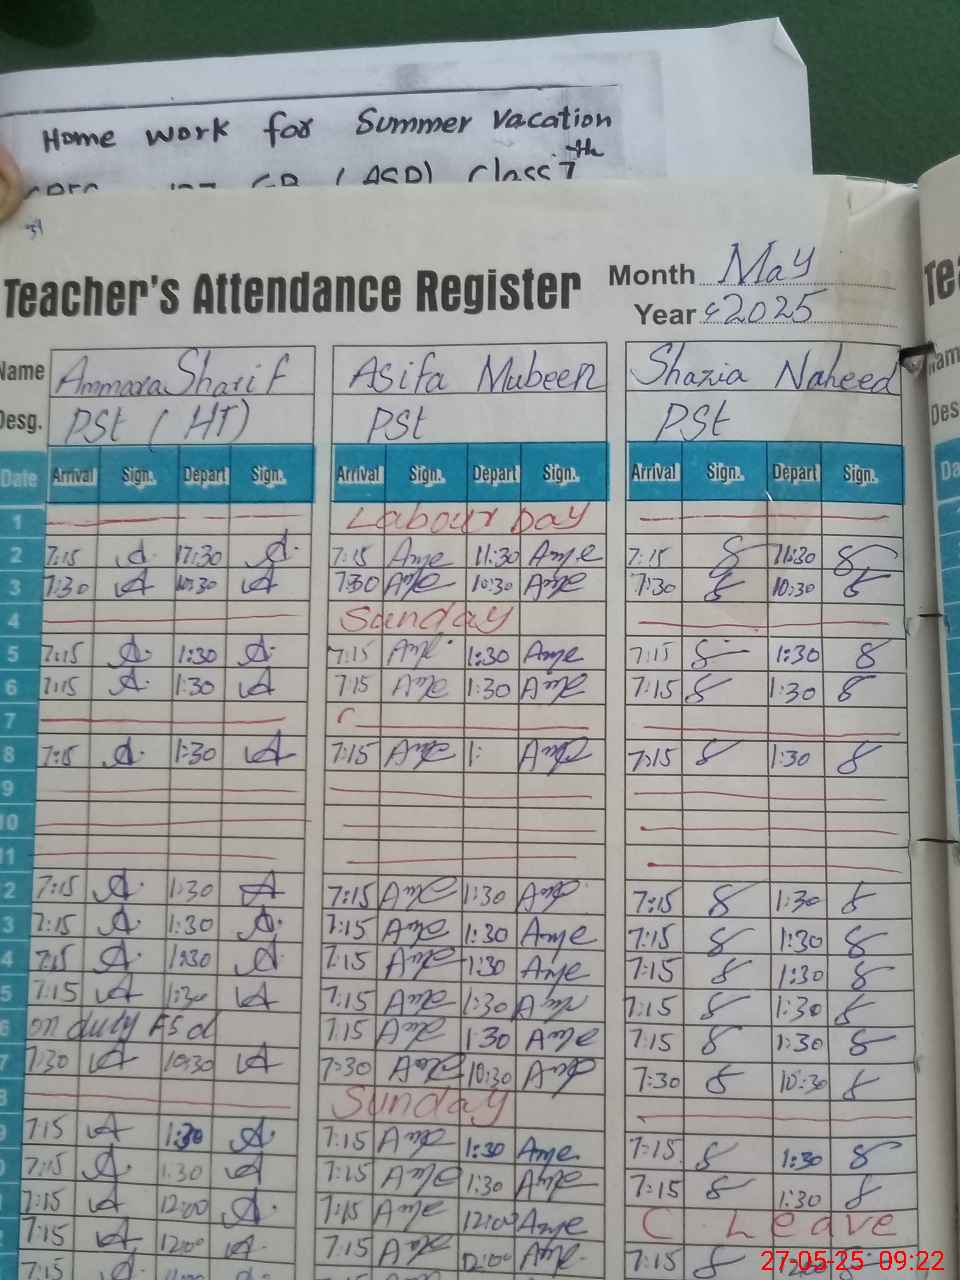 Home work for Summer Vacation
Class 7th
Teacher's Attendance Register Month May
Year 2025
Name Ammara Sharif Asifa Mubeen Shazia Naheed
Desg. PSt (HT) PSt PSt
Date Arrival Sign. Depart Sign. Arrival Sign. Depart Sign. Arrival Sign. Depart Sign.
1 Labour Day
2 7:15 A. 11:30 A. 7:15 Ame 11:30 Ame 7:15 11:30
3 7:30 A 10:30 A 7:30 Ame 10:30 Ame 7:30 10:30
4 Sunday
5 7:15 A. 1:30 A. 7:15 Ame 1:30 Ame 7:15 1:30
6 7:15 A. 1:30 A 7:15 Ame 1:30 Ame 7:15 1:30
7
8 7:15 A. 1:30 A 7:15 Ame 1: Ame 7:15 1:30
9
10
11
2 7:15 A. 1:30 A 7:15 Ame 1:30 Ame 7:15 1:30
3 7:15 A. 1:30 A. 7:15 Ame 1:30 Ame 7:15 1:30
4 7:15 A. 1:30 A. 7:15 Ame 1:30 Ame 7:15 1:30
5 7:15 A 1:30 A 7:15 Ame 1:30 Ame 7:15 1:30
6 on duty 7:15 Ame 1:30 Ame 7:15 1:30
7 7:30 A 10:30 A 7:30 Ame 10:30 Ame 7:30 10:30
8 Sunday
9 7:15 A 1:30 A. 7:15 Ame 1:30 Ame 7:15 1:30
7:15 A. 1:30 A 7:15 Ame 1:30 Ame 7:15 1:30
7:15 A 12:00 A. 7:15 Ame 12:00 Ame C. Leave
7:15 A 12:00 A. 7:15 Ame 12:00 Ame 7:15
7:15
27-05-25 09:22